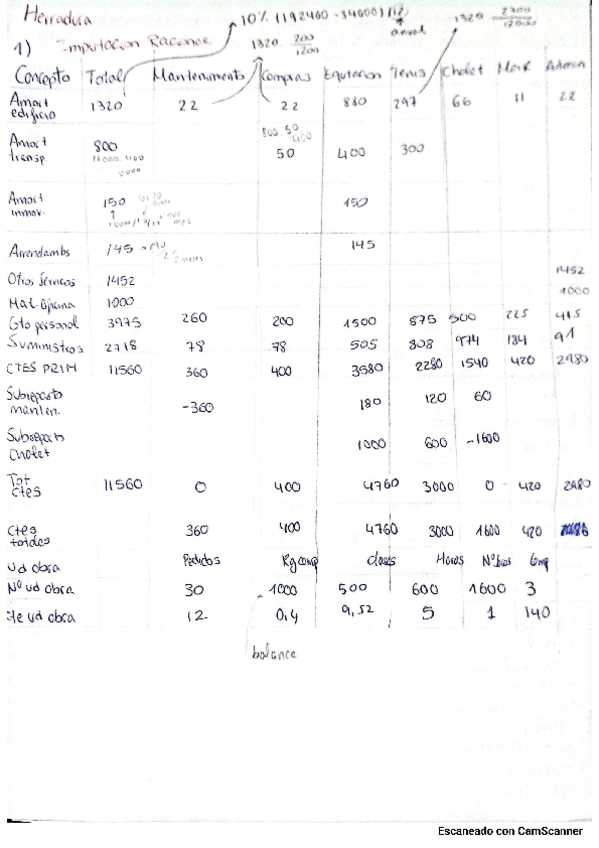 Herradura
10% (192400 - 34000) /12
anual
1320 2700/12000
1) Imputacion Racional
1320 · 200/1200
Concepto Total Mantenimiento Compras Equitacion Tenis Chalet Mark Admin
Amort edificio 1320 22 22 880 297 66 11 22
Amort transp. 800 50 400 300
Amort inmov. 150 150
Arrendambs 145 145
Otros Servicios 1452 1452
Mat. oficina 1000 1000
Gto personal 3975 260 200 1500 875 500 225 415
Suministros 2718 78 78 505 808 974 184 91
CTES PRIM 11560 360 400 3580 2280 1540 420 2980
Subreparto manten. -360 180 120 60
Subreparto Chalet 1000 600 -1600
Tot ctes 11560 0 400 4760 3000 0 420 2980
Ctes totales 360 400 4760 3000 1600 420
Ud obra Pedidos Kg comp clases Horas
Nº ud obra 30 1000 500 600 1600 3
Cte ud obra 12 0,4 9,52 5 1 140
balance
Escaneado con CamScanner